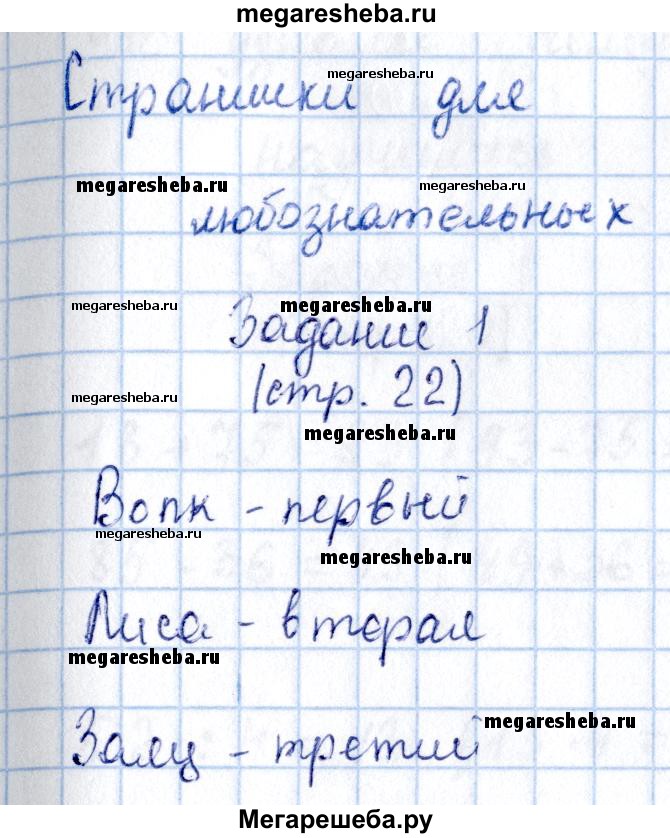 megaresheba.ru
Странички для
megaresheba.ru
megaresheba.ru
megaresheba.ru
любознательных
megaresheba.ru
megaresheba.ru
Задание 1
megaresheba.ru
(стр. 22)
megaresheba.ru
Волк - первый
megaresheba.ru
megaresheba.ru
Лиса - вторая
megaresheba.ru
megaresheba.ru
Заяц - третий
Мегарешеба.ру